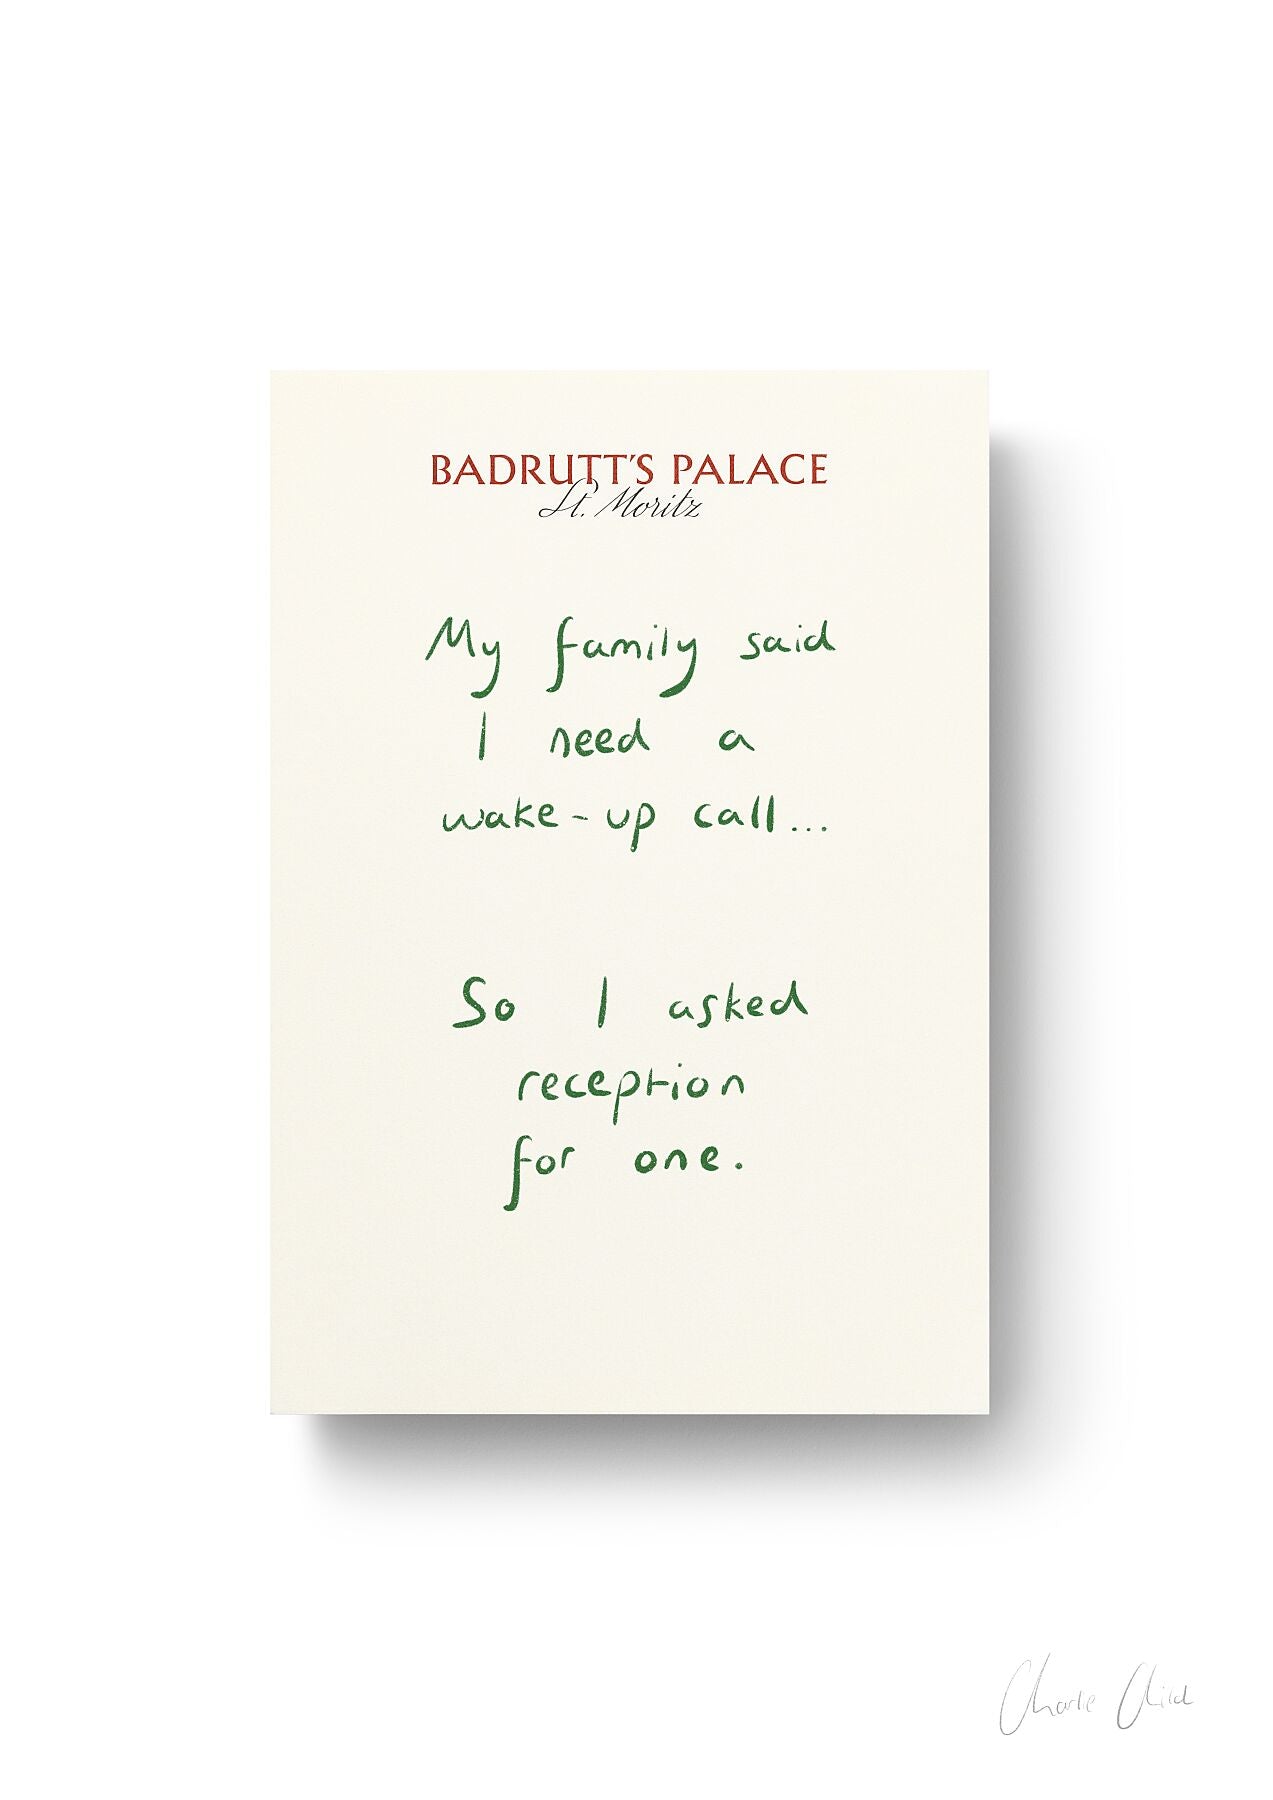 BADRUTT'S PALACE
St. Moritz
My family said
I need a
wake-up call...
So I asked
reception
for one.
Charlie Child